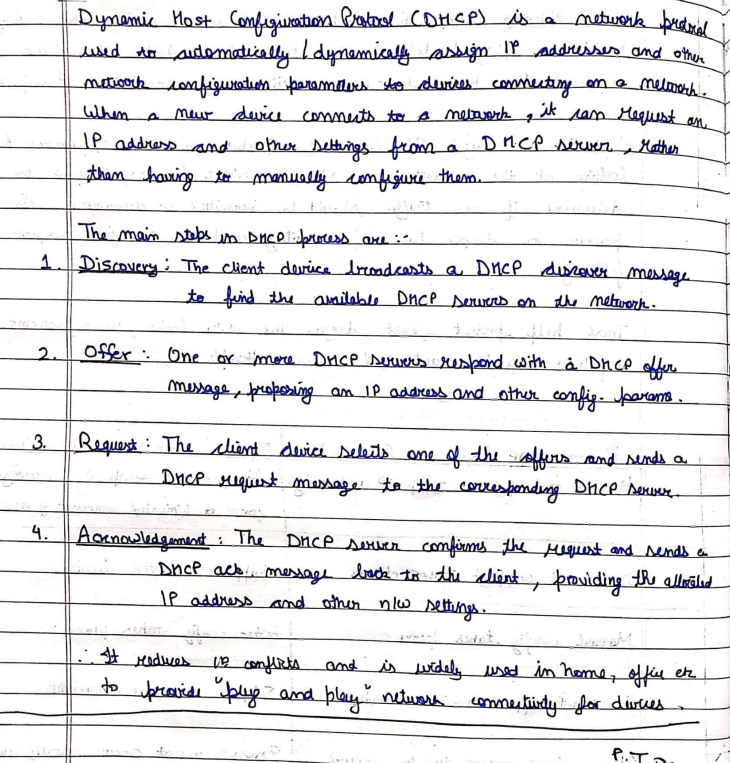 Dynamic Host Configuration Protocol (DHCP) is a network protocol
used to automatically / dynamically assign IP addresses and other
network configuration parameters to devices connecting on a network.
When a new device connects to a network, it can request an
IP address and other settings from a DHCP server, rather
than having to manually configure them.
The main steps in DHCP process are :-
1. Discovery : The client device broadcasts a DHCP discover message
to find the available DHCP servers on the network.
2. Offer : One or more DHCP servers respond with a DHCP offer
message, proposing an IP address and other config. params.
3. Request : The client device selects one of the offers and sends a
DHCP request message to the corresponding DHCP server.
4. Acknowledgement : The DHCP server confirms the request and sends a
DHCP ack. message back to the client, providing the allocated
IP address and other n/w settings.
∴ It reduces IP conflicts and is widely used in home, office etc
to provide "plug and play" network connectivity for devices.
P.T.O